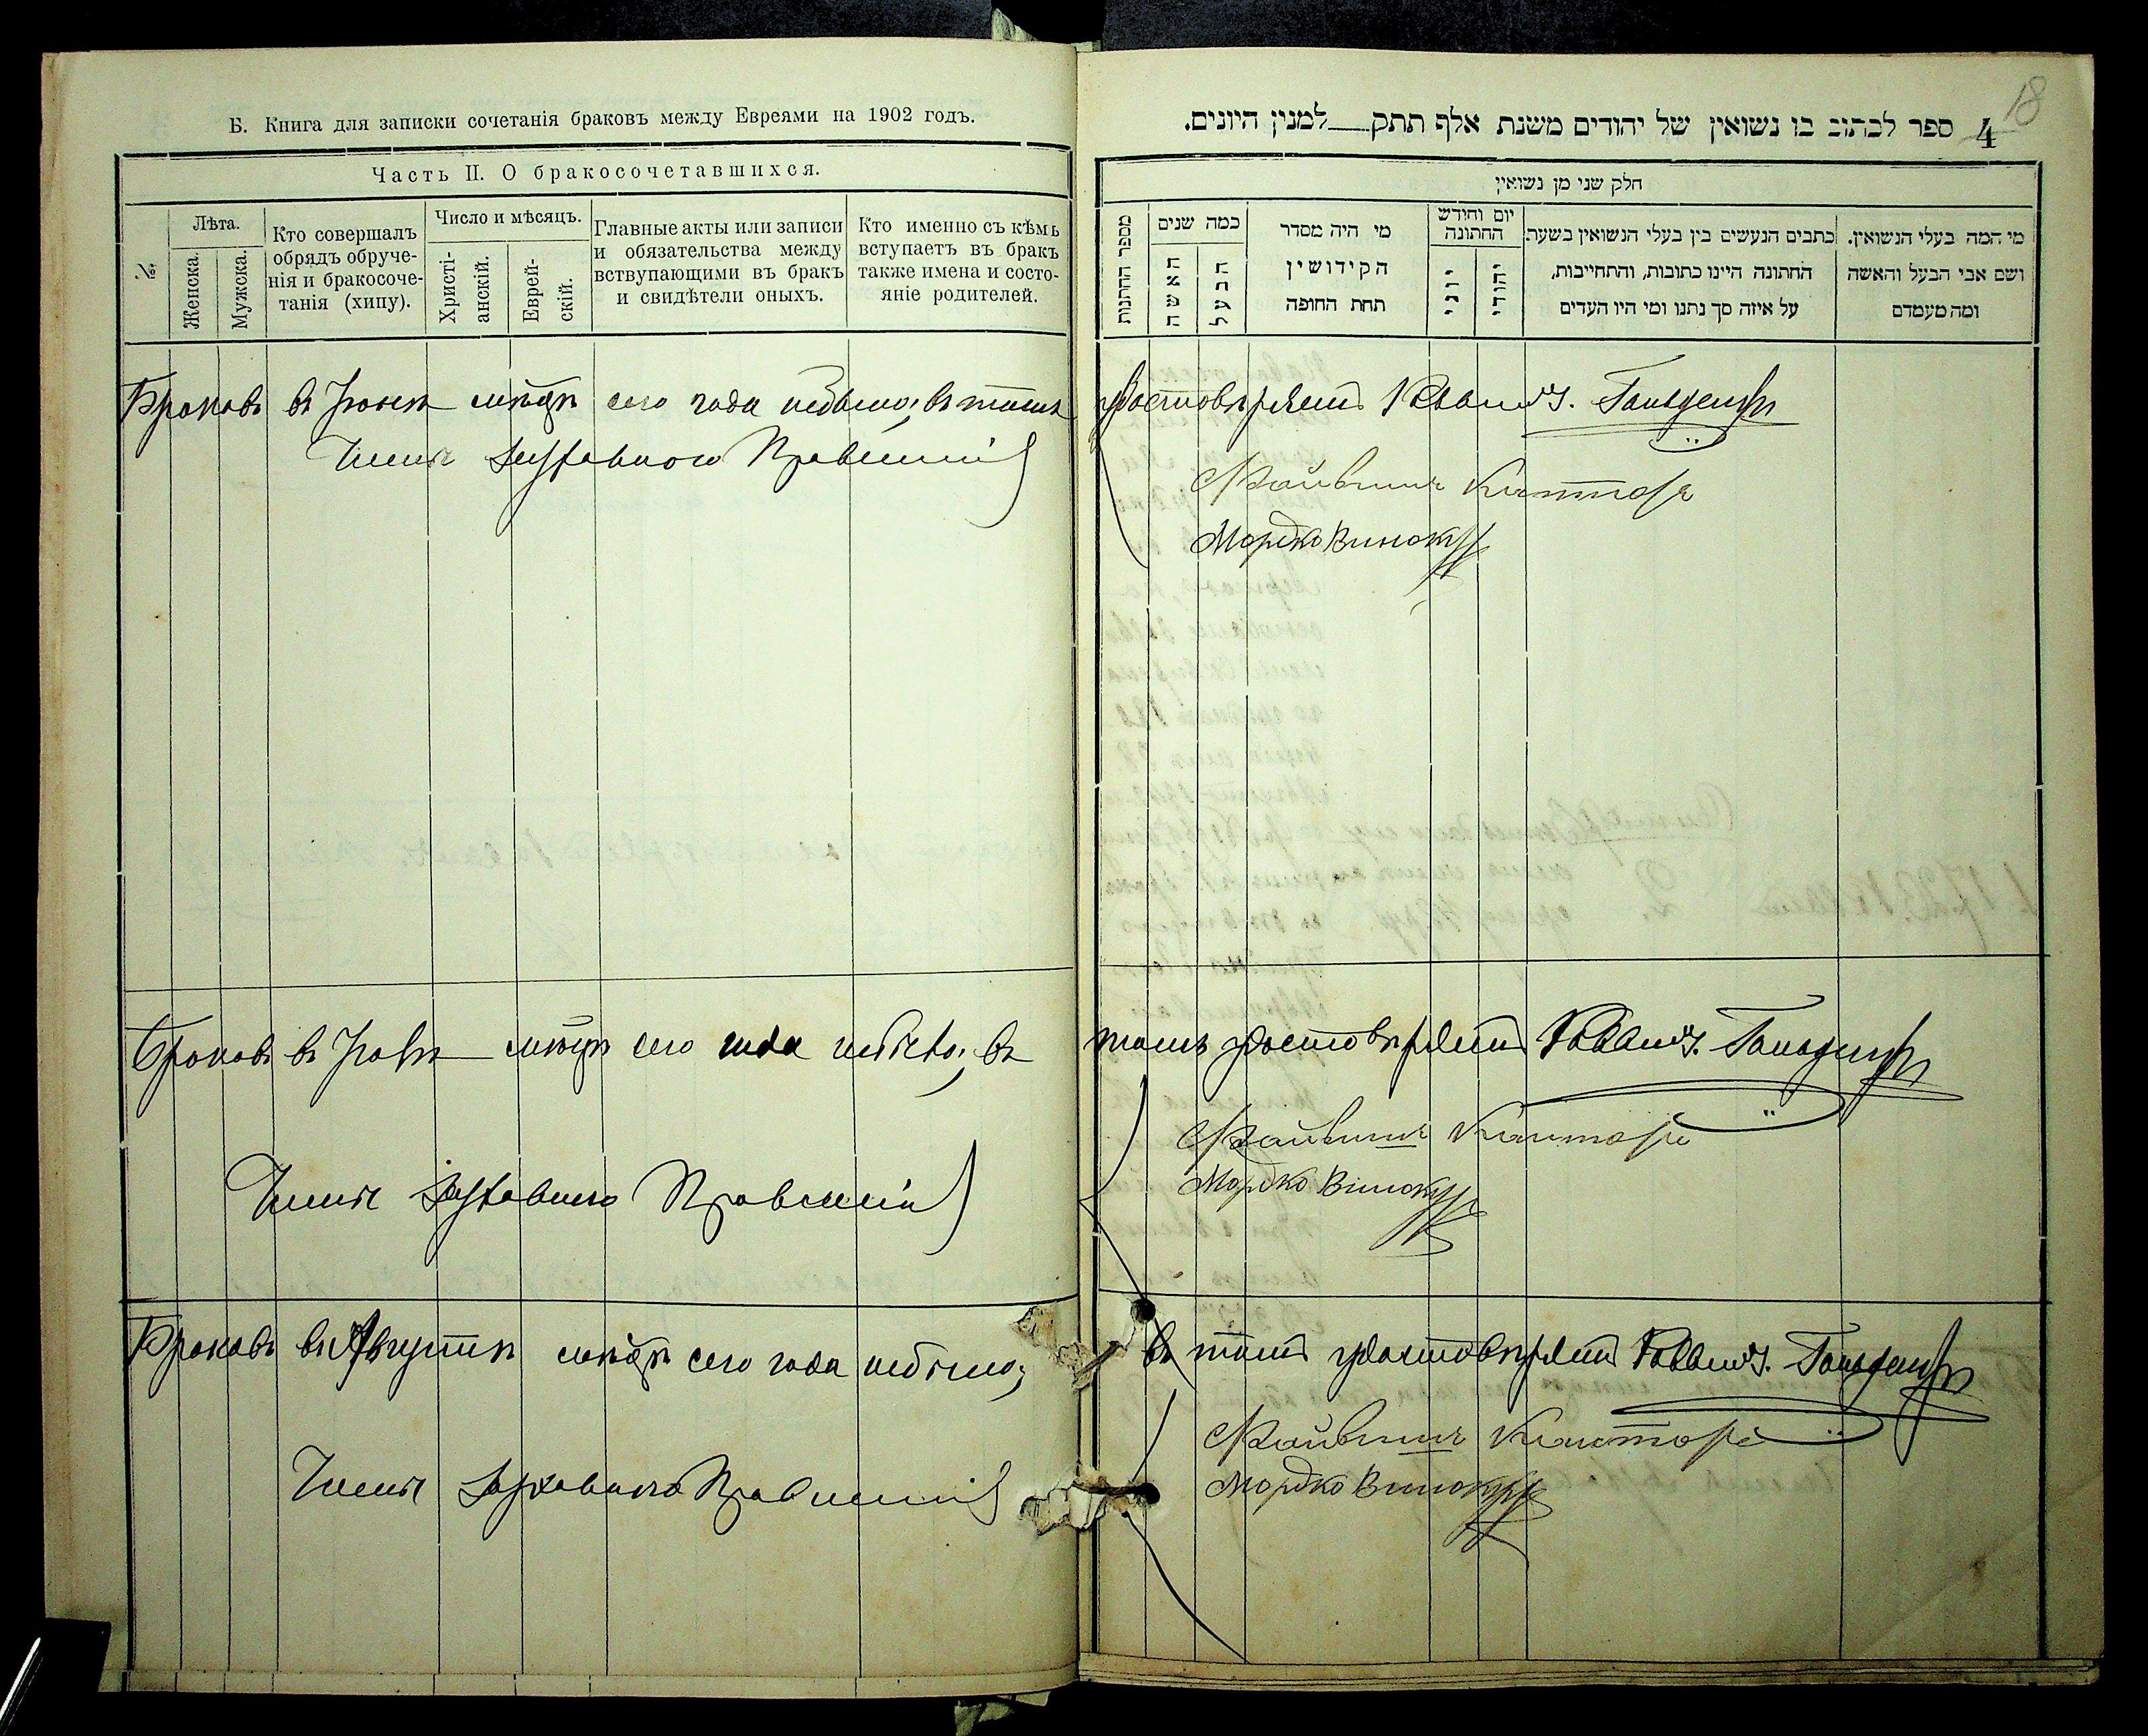 Б. Книга для записки сочетанія браковъ между Евреями на 1902 годъ.
Часть II. О бракосочетавшихся.
№
Лѣта.
Женска.
Мужска.
Кто совершалъ
обрядъ обруче-
нія и бракосоче-
танія (хипу).
Число и мѣсяцъ.
Христі-
анскій.
Еврей-
скій.
Главные акты или записи
и обязательства между
вствупающими въ бракъ
и свидѣтели оныхъ.
Кто именно съ кѣмъ
вступаетъ въ бракъ
также имена и состо-
яніе родителей.
Браковъ въ Іюнѣ мѣсяцѣ сего года небыло; въ томъ
Члены Духовнаго Правленія
Браковъ въ Іюлѣ мѣсяцѣ сего года небыло; въ
Члены Духовнаго Правленія
Браковъ въ Августѣ мѣсяцѣ сего года небыло;
Члены Духовнаго Правленія
18
4 ספר לכתוב בו נשואין של יהודים משנת אלף תתק למנין היונים.
חלק שני מן נשואין
מספר החתונות
כמה שנים
האשה
הבעל
מי היה מסדר
הקידושין
תחת החופה
יום וחודש
החתונה
יוני
יהודי
כתבים הנעשים בין בעלי הנשואין בשעת
החתונה היינו כתובות, והתחייבות,
על איזה סך נתנו ומי היו העדים
מי המה בעלי הנשואין.
ושם אבי הבעל והאשה
ומה מעמדם
удостовѣряетъ Раввинъ
Файвишъ Канторъ
Мордко Винокуръ
томъ удостовѣряетъ Раввинъ
Файвишъ Канторъ
Мордко Винокуръ
въ томъ удостовѣряетъ Раввинъ
Файвишъ Канторъ
Мордко Винокуръ